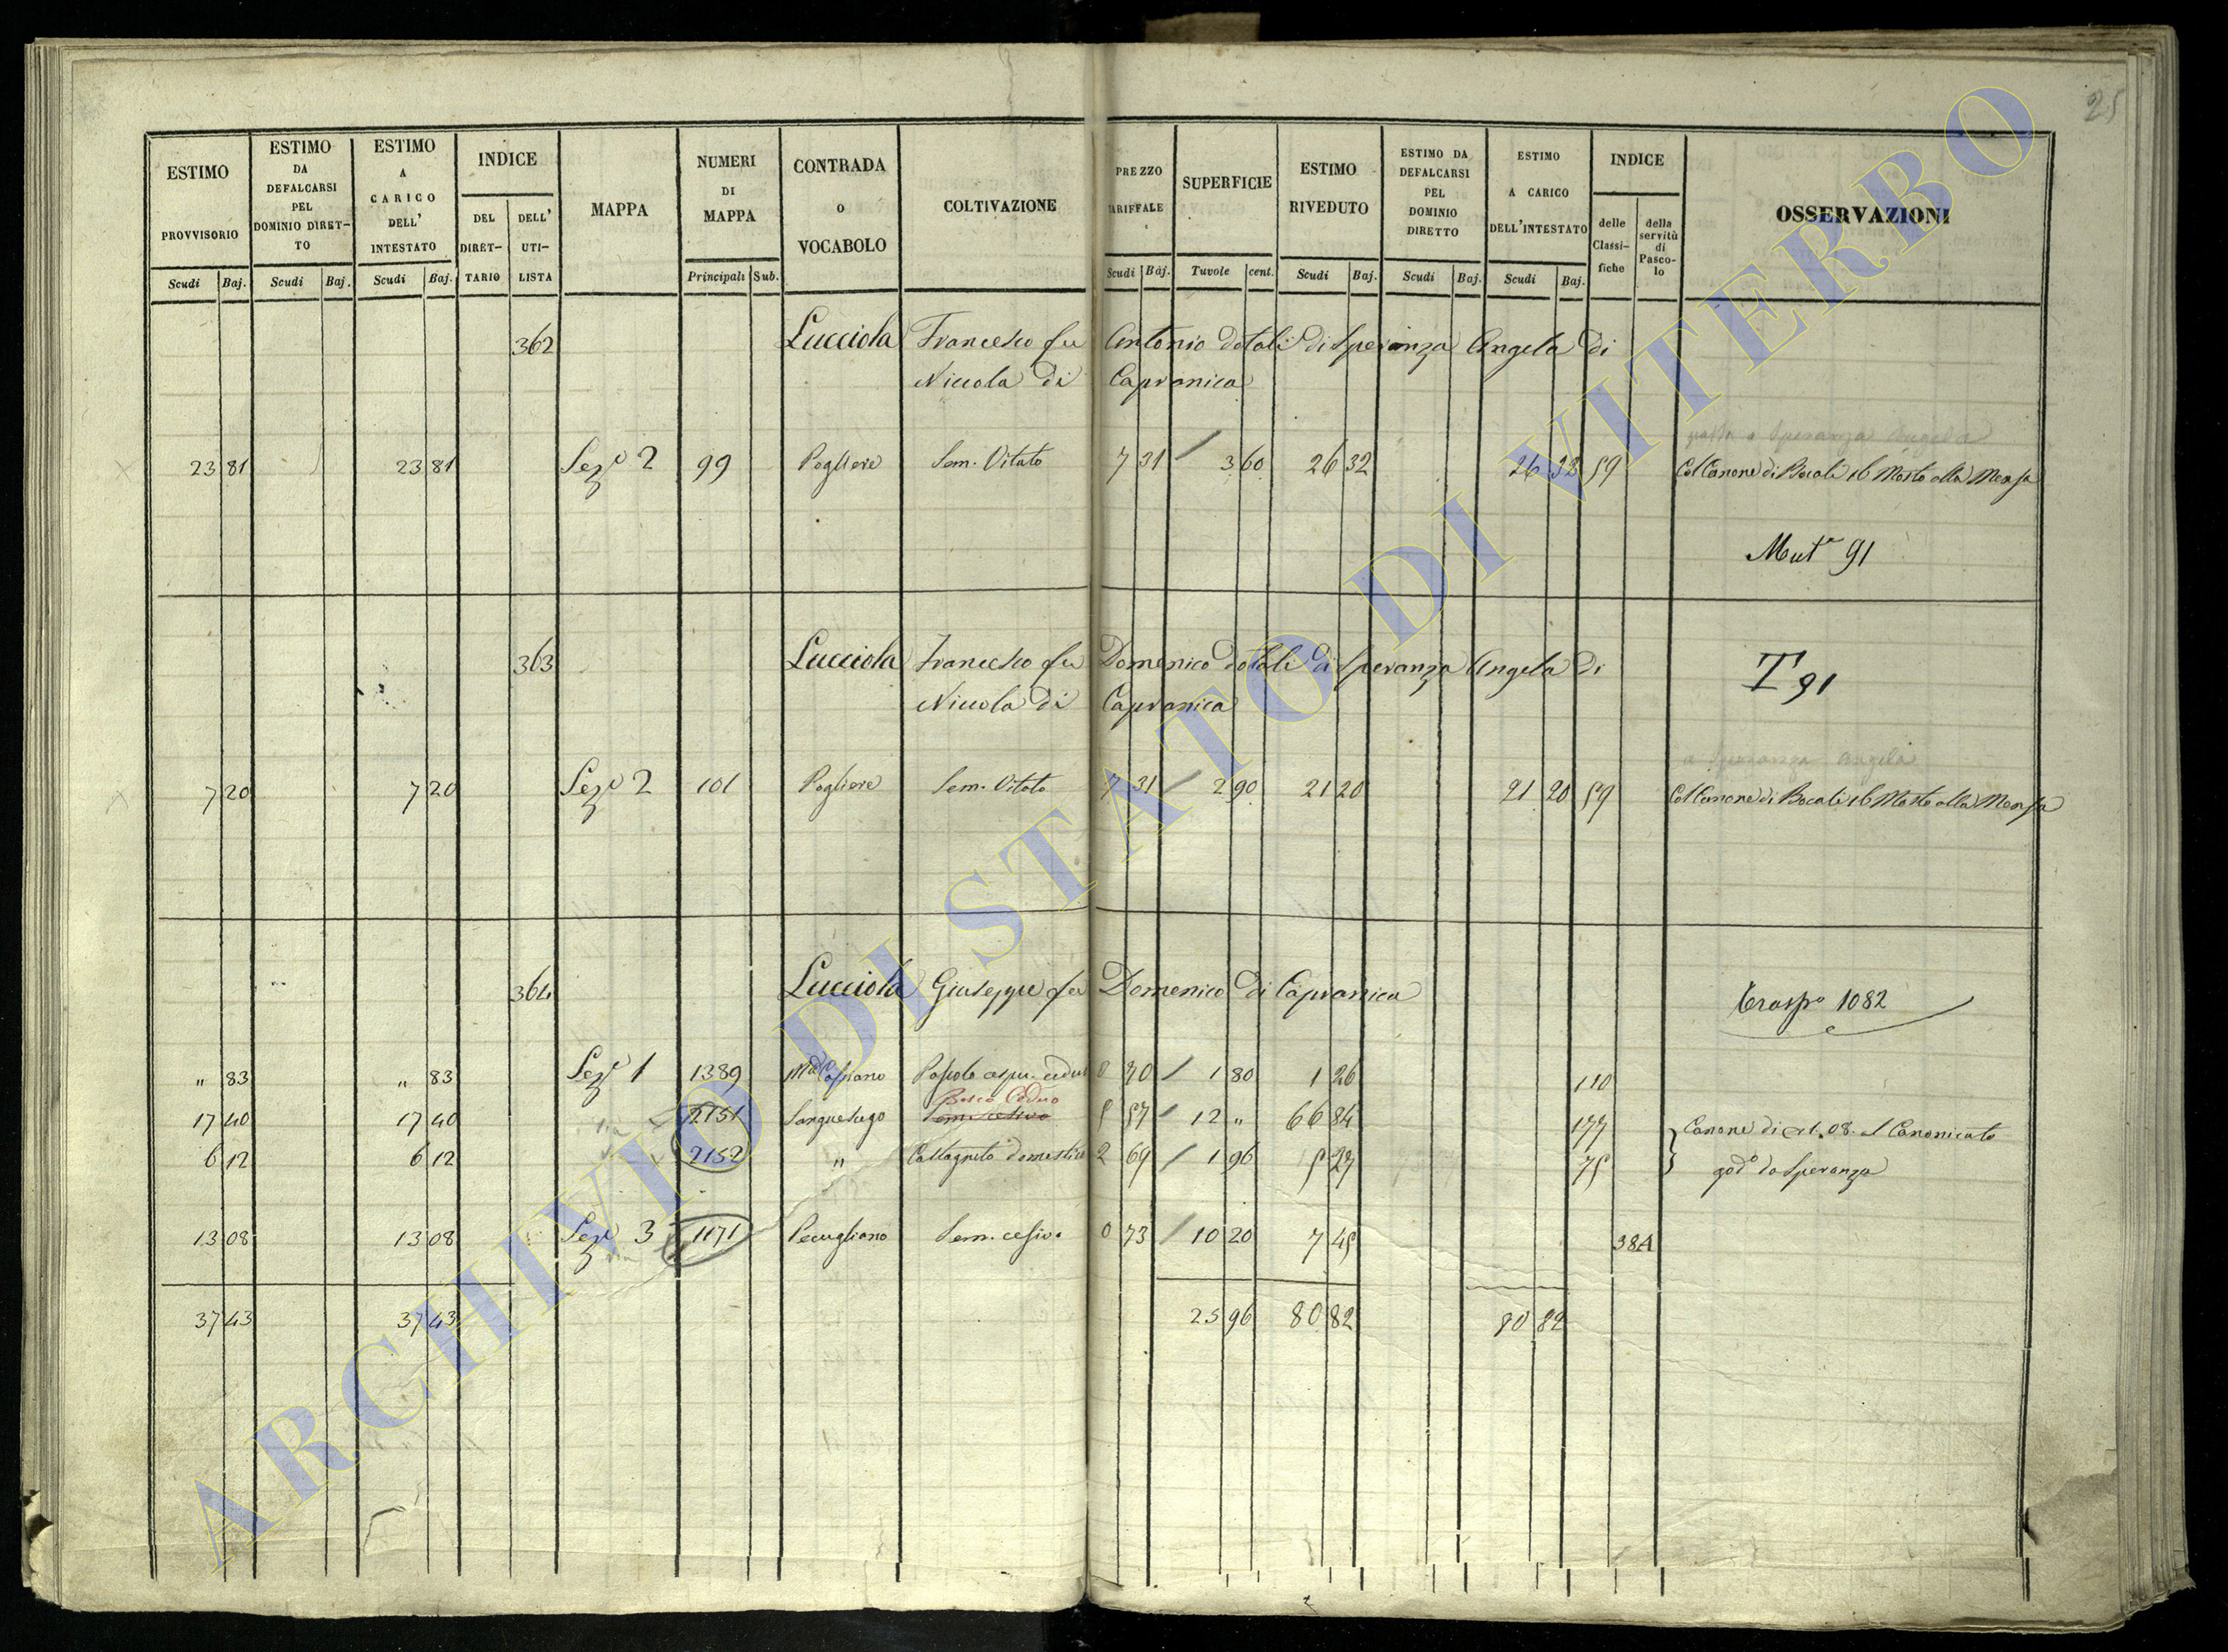 25
ESTIMO PROVVISORIO Scudi Baj.
ESTIMO DA DEFALCARSI PEL DOMINIO DIRETTO Scudi Baj.
ESTIMO A CARICO DELL' INTESTATO Scudi Baj.
INDICE DEL DIRETTARIO DELL' UTILISTA
MAPPA
NUMERI DI MAPPA Principali Sub.
CONTRADA O VOCABOLO
COLTIVAZIONE
PREZZO TARIFFALE Scudi Baj.
SUPERFICIE Tavole cent.
ESTIMO RIVEDUTO Scudi Baj.
ESTIMO DA DEFALCARSI PEL DOMINIO DIRETTO Scudi Baj.
ESTIMO A CARICO DELL'INTESTATO Scudi Baj.
INDICE delle Classifiche della servitù di Pascolo
OSSERVAZIONI
362 Lucciola Francesco fu Antonio dotali di Speranza Angela di
Niccola di Capranica
passa a Speranza Angela
23 81 23 81 Sez.e 2 99 Pogliere Sem. Vitato 7 31 / 3 60 26 32 26 32 59 Col Canone di Bocali 16 Mosto alla Mensa
Mut.e 91
363 Lucciola Francesco fu Domenico dotali di Speranza Angela di
T 91
Niccola di Capranica
a Speranza Angela
7 20 7 20 Sez.e 2 101 Pogliere Sem. Vitato 7 31 / 2 90 21 20 21 20 59 Col Canone di Bocali 16 Mosto alla Mensa
364 Lucciola Giuseppe fu Domenico di Capranica
Trasp.o 1082
" 83 " 83 Sez.e 1 1389 0 70 / 1 80 1 26 110
Bosco Ceduo
17 40 17 40 2151 Sanguesugo 5 57 / 12 " 66 84 177 Canone di 1. 08. al Canonicato
6 12 6 12 2152 " Castagneto domestico 2 69 / 1 96 5 27 75 god.o da Speranza
13 08 13 08 Sez.e 3 1171 Pecugliano Sem. cesivo 0 73 / 10 20 7 45 384
37 43 37 43 25 96 80 82 80 82
ARCHIVIO DI STATO DI VITERBO